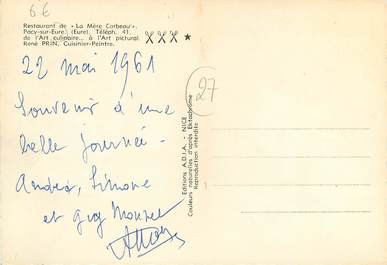 6 €
Restaurant de « La Mère Corbeau »,
Pacy-sur-Eure. (Eure). Téléph. 41.
de l'Art culinaire... à l'Art pictural
René PRIN, Cuisinier-Peintre.
22 mai 1961
Souvenir d'une
belle journée -
André, Simone
et guy
27
Editions A.D.I.A. - NICE
Couleurs naturelles d'après Ektachrome
Reproduction interdite